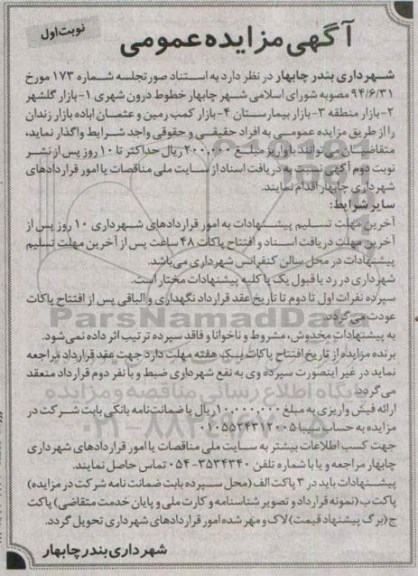 نوبت اول
آگهی مزایده عمومی
شهرداری بندر چابهار در نظر دارد به استناد صورتجلسه شماره ۱۷۳ مورخ
۹۴/۶/۳۱ مصوبه شورای اسلامی شهر چابهار خطوط درون شهری ۱- بازار گلشهر
۲- بازار منطقه ۳- بازار بیمارستان ۴- بازار کمب رمین و عثمان اباده بازار زندان
را از طریق مزایده عمومی به افراد حقیقی و حقوقی واجد شرایط واگذار نماید،
متقاضیان می توانند با واریز مبلغ ۲۰۰،۰۰۰ ریال حداکثر تا ۱۰ روز پس از نشر
نوبت دوم آگهی نسبت به دریافت اسناد از سایت ملی مناقصات یا امور قراردادهای
شهرداری چابهار اقدام نمایند.
سایر شرایط:
آخرین مهلت تسلیم پیشنهادات به امور قراردادهای شهرداری ۱۰ روز پس از
آخرین مهلت دریافت اسناد و افتتاح پاکات ۴۸ ساعت پس از آخرین مهلت تسلیم
پیشنهادات در محل سالن کنفرانس شهرداری می باشد.
شهرداری در رد یا قبول یک یا کلیه پیشنهادات مختار است.
سپرده نفرات اول تا دوم تا تاریخ عقد قرارداد نگهداری و الباقی پس از افتتاح پاکات
عودت می گردد.
ParsNamadData
به پیشنهادات مخدوش، مشروط و ناخوانا و فاقد سپرده ترتیب اثر داده نمی شود.
برنده مزایده از تاریخ افتتاح پاکات یک هفته مهلت دارد جهت عقد قرارداد مراجعه
نماید در غیر اینصورت سپرده وی به نفع شهرداری ضبط و با نفر دوم قرارداد منعقد
می گردد.
پایگاه اطلاع رسانی مناقصه و مزایده
ارائه فیش واریزی به مبلغ ۱۰۰،۰۰۰،۰۰۰ ریال یا ضمانت نامه بانکی بابت شرکت در
مزایده به حساب سیبا ۰۱۰۵۵۲۴۳۱۲۰۰۵
جهت کسب اطلاعات بیشتر به سایت ملی مناقصات یا امور قراردادهای شهرداری
چابهار مراجعه و یا با شماره تلفن ۳۵۳۴۳۴۰-۰۵۴ تماس حاصل نمایند.
پیشنهادات باید در ۳ پاکت الف (محل سپرده بابت ضمانت نامه شرکت در مزایده)
پاکت ب (نمونه قرارداد و تصویر شناسنامه و کارت ملی و پایان خدمت متقاضی) پاکت
ج (برگ پیشنهاد قیمت) لاک و مهر شده امور قراردادهای شهرداری تحویل گردد.
شهرداری بندر چابهار